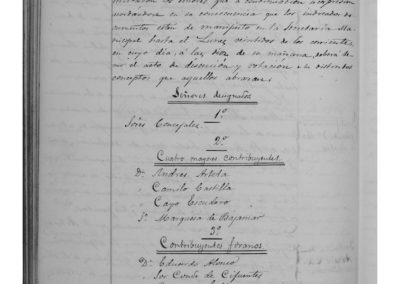 mitaron los señores que a continuacion se espresan
acordandose en su consecuencia que los indicados do-
cumentos estén de manifiesto en la Secretaría Mu-
nicipal hasta el Lunes veintidos de los corrientes
en cuyo dia, á las diez de su mañana, deberá de-
nir el acto de discusion y votacion de los distintos
conceptos que aquellos abrazan.
Señores designados
1º
Sores Concejales.
2º
Cuatro mayores contribuyentes.
Dn Andres Arteta
" Camilo Castilla
" Cayo Escudero
Sa Marquesa de Bajamar
3º
Contribuyentes foranos.
Dn Eduardo Alonso
" Sor Conde de Cifuentes